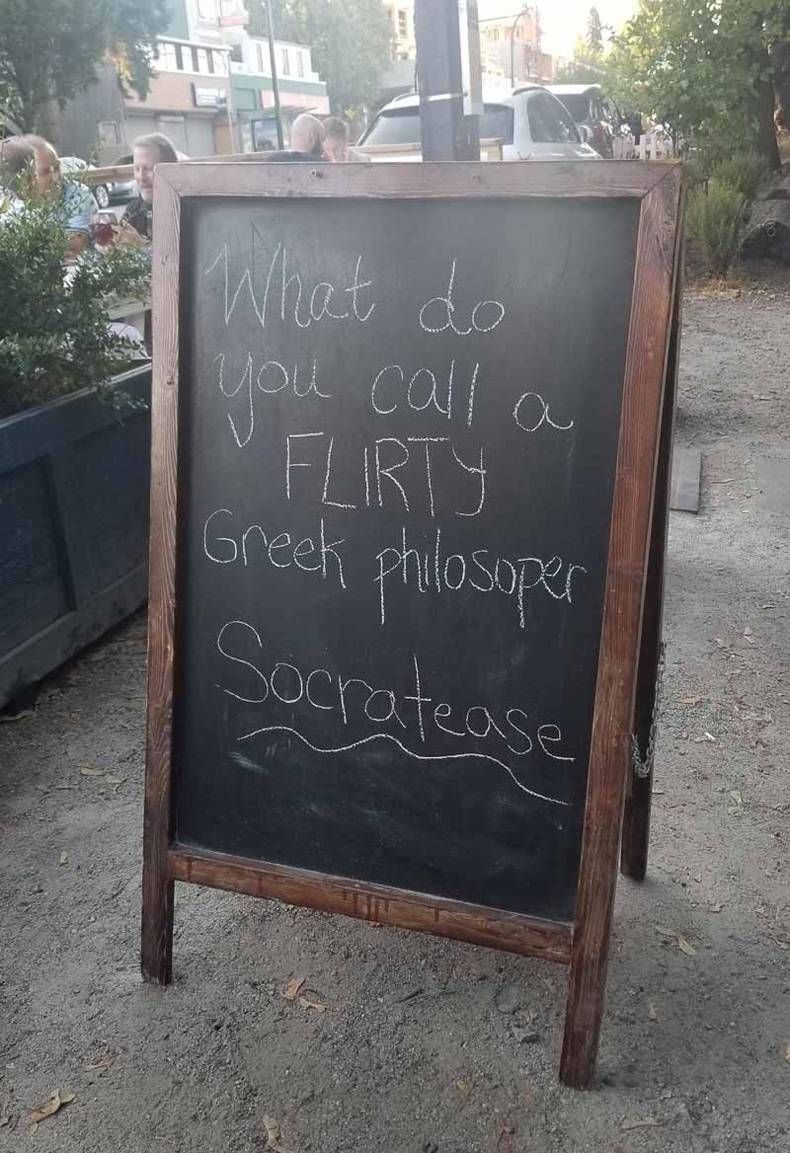 What do
you call a
FLIRTY
Greek philosoper
Socratease